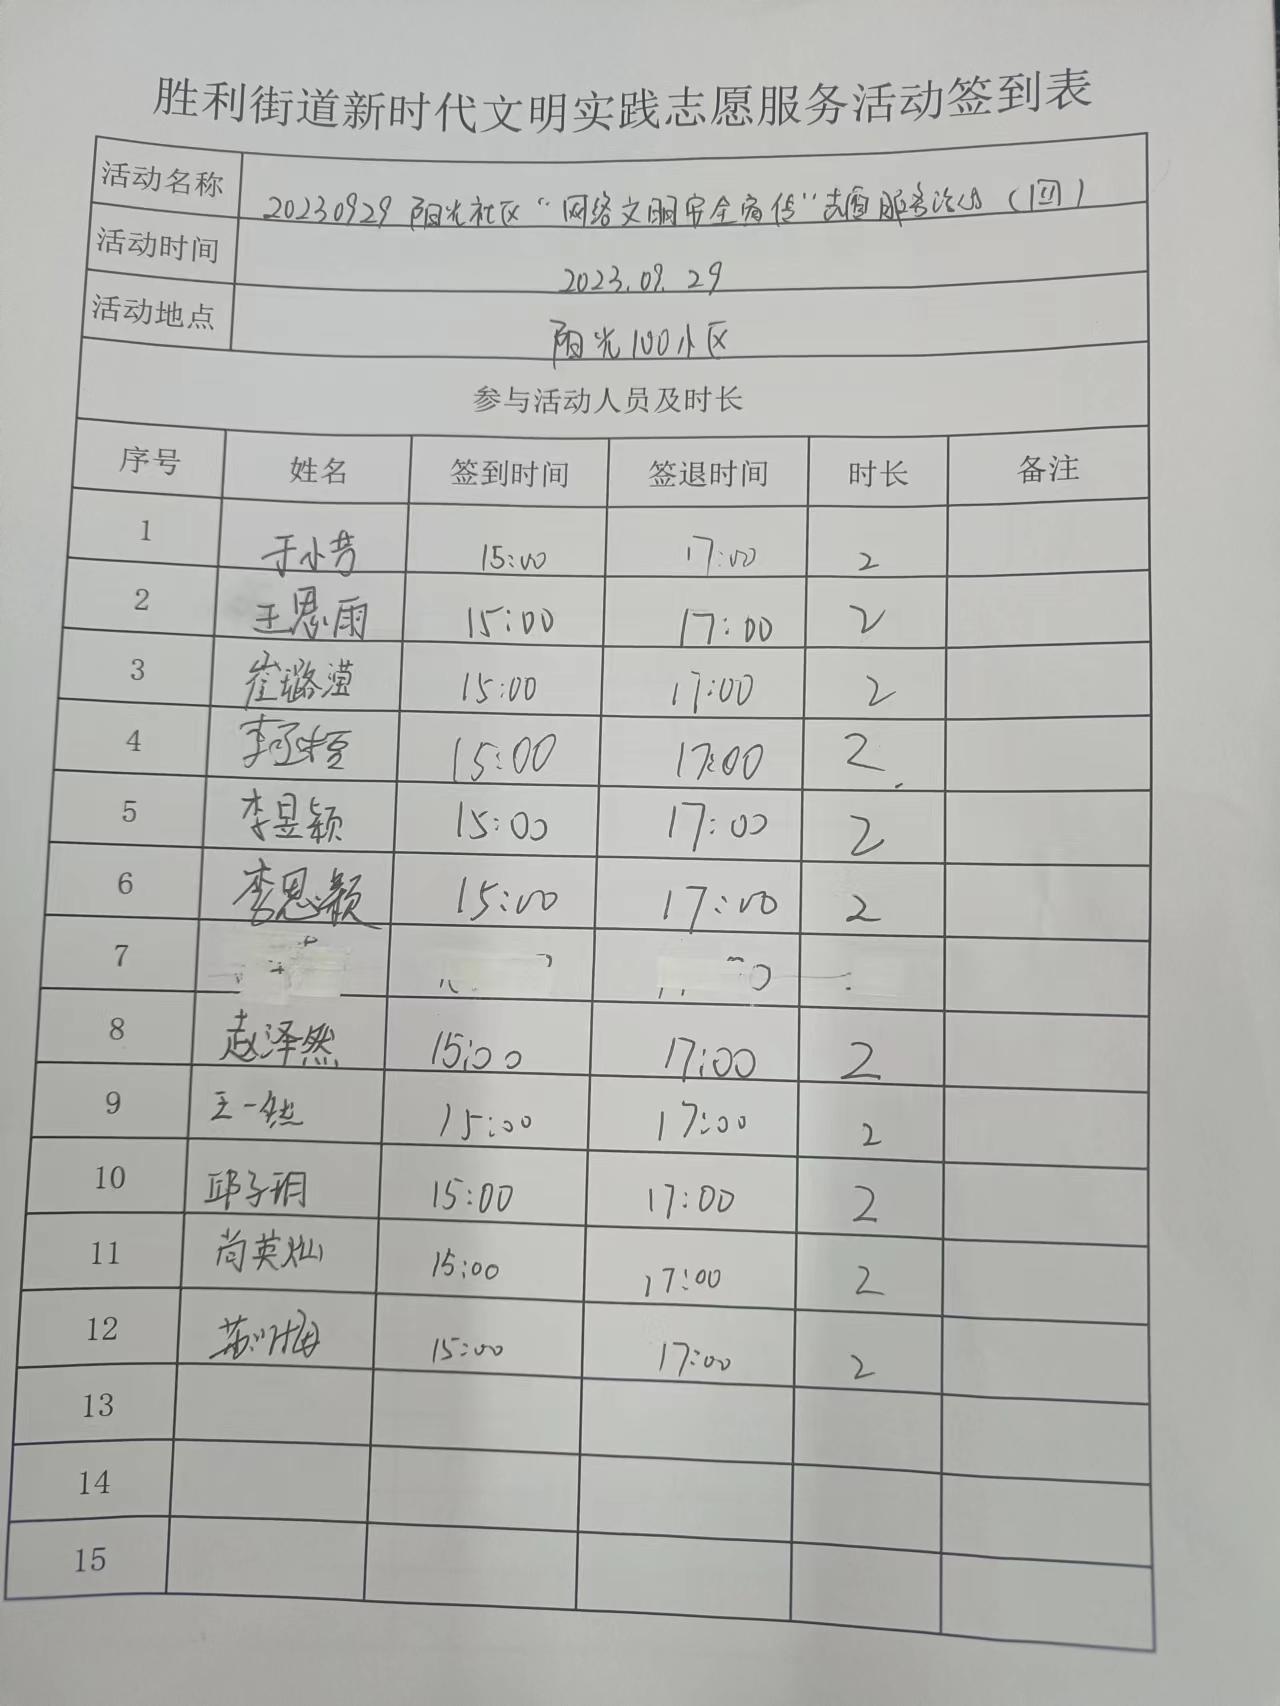 胜利街道新时代文明实践志愿服务活动签到表
活动名称 20230929 阳光社区“网络文明安全宣传”志愿服务活动（1四）
活动时间 2023.09.29
活动地点 阳光100小区
参与活动人员及时长
序号 姓名 签到时间 签退时间 时长 备注
1 于小芳 15:00 17:00 2
2 王恩雨 15:00 17:00 2
3 崔璐滢 15:00 17:00 2
4 15:00 17:00 2
5 李昱颖 15:00 17:00 2
6 李恩颖 15:00 17:00 2
7
8 赵泽然 15:00 17:00 2
9 王一然 15:00 17:00 2
10 邱子玥 15:00 17:00 2
11 尚英灿 15:00 17:00 2
12 15:00 17:00 2
13
14
15